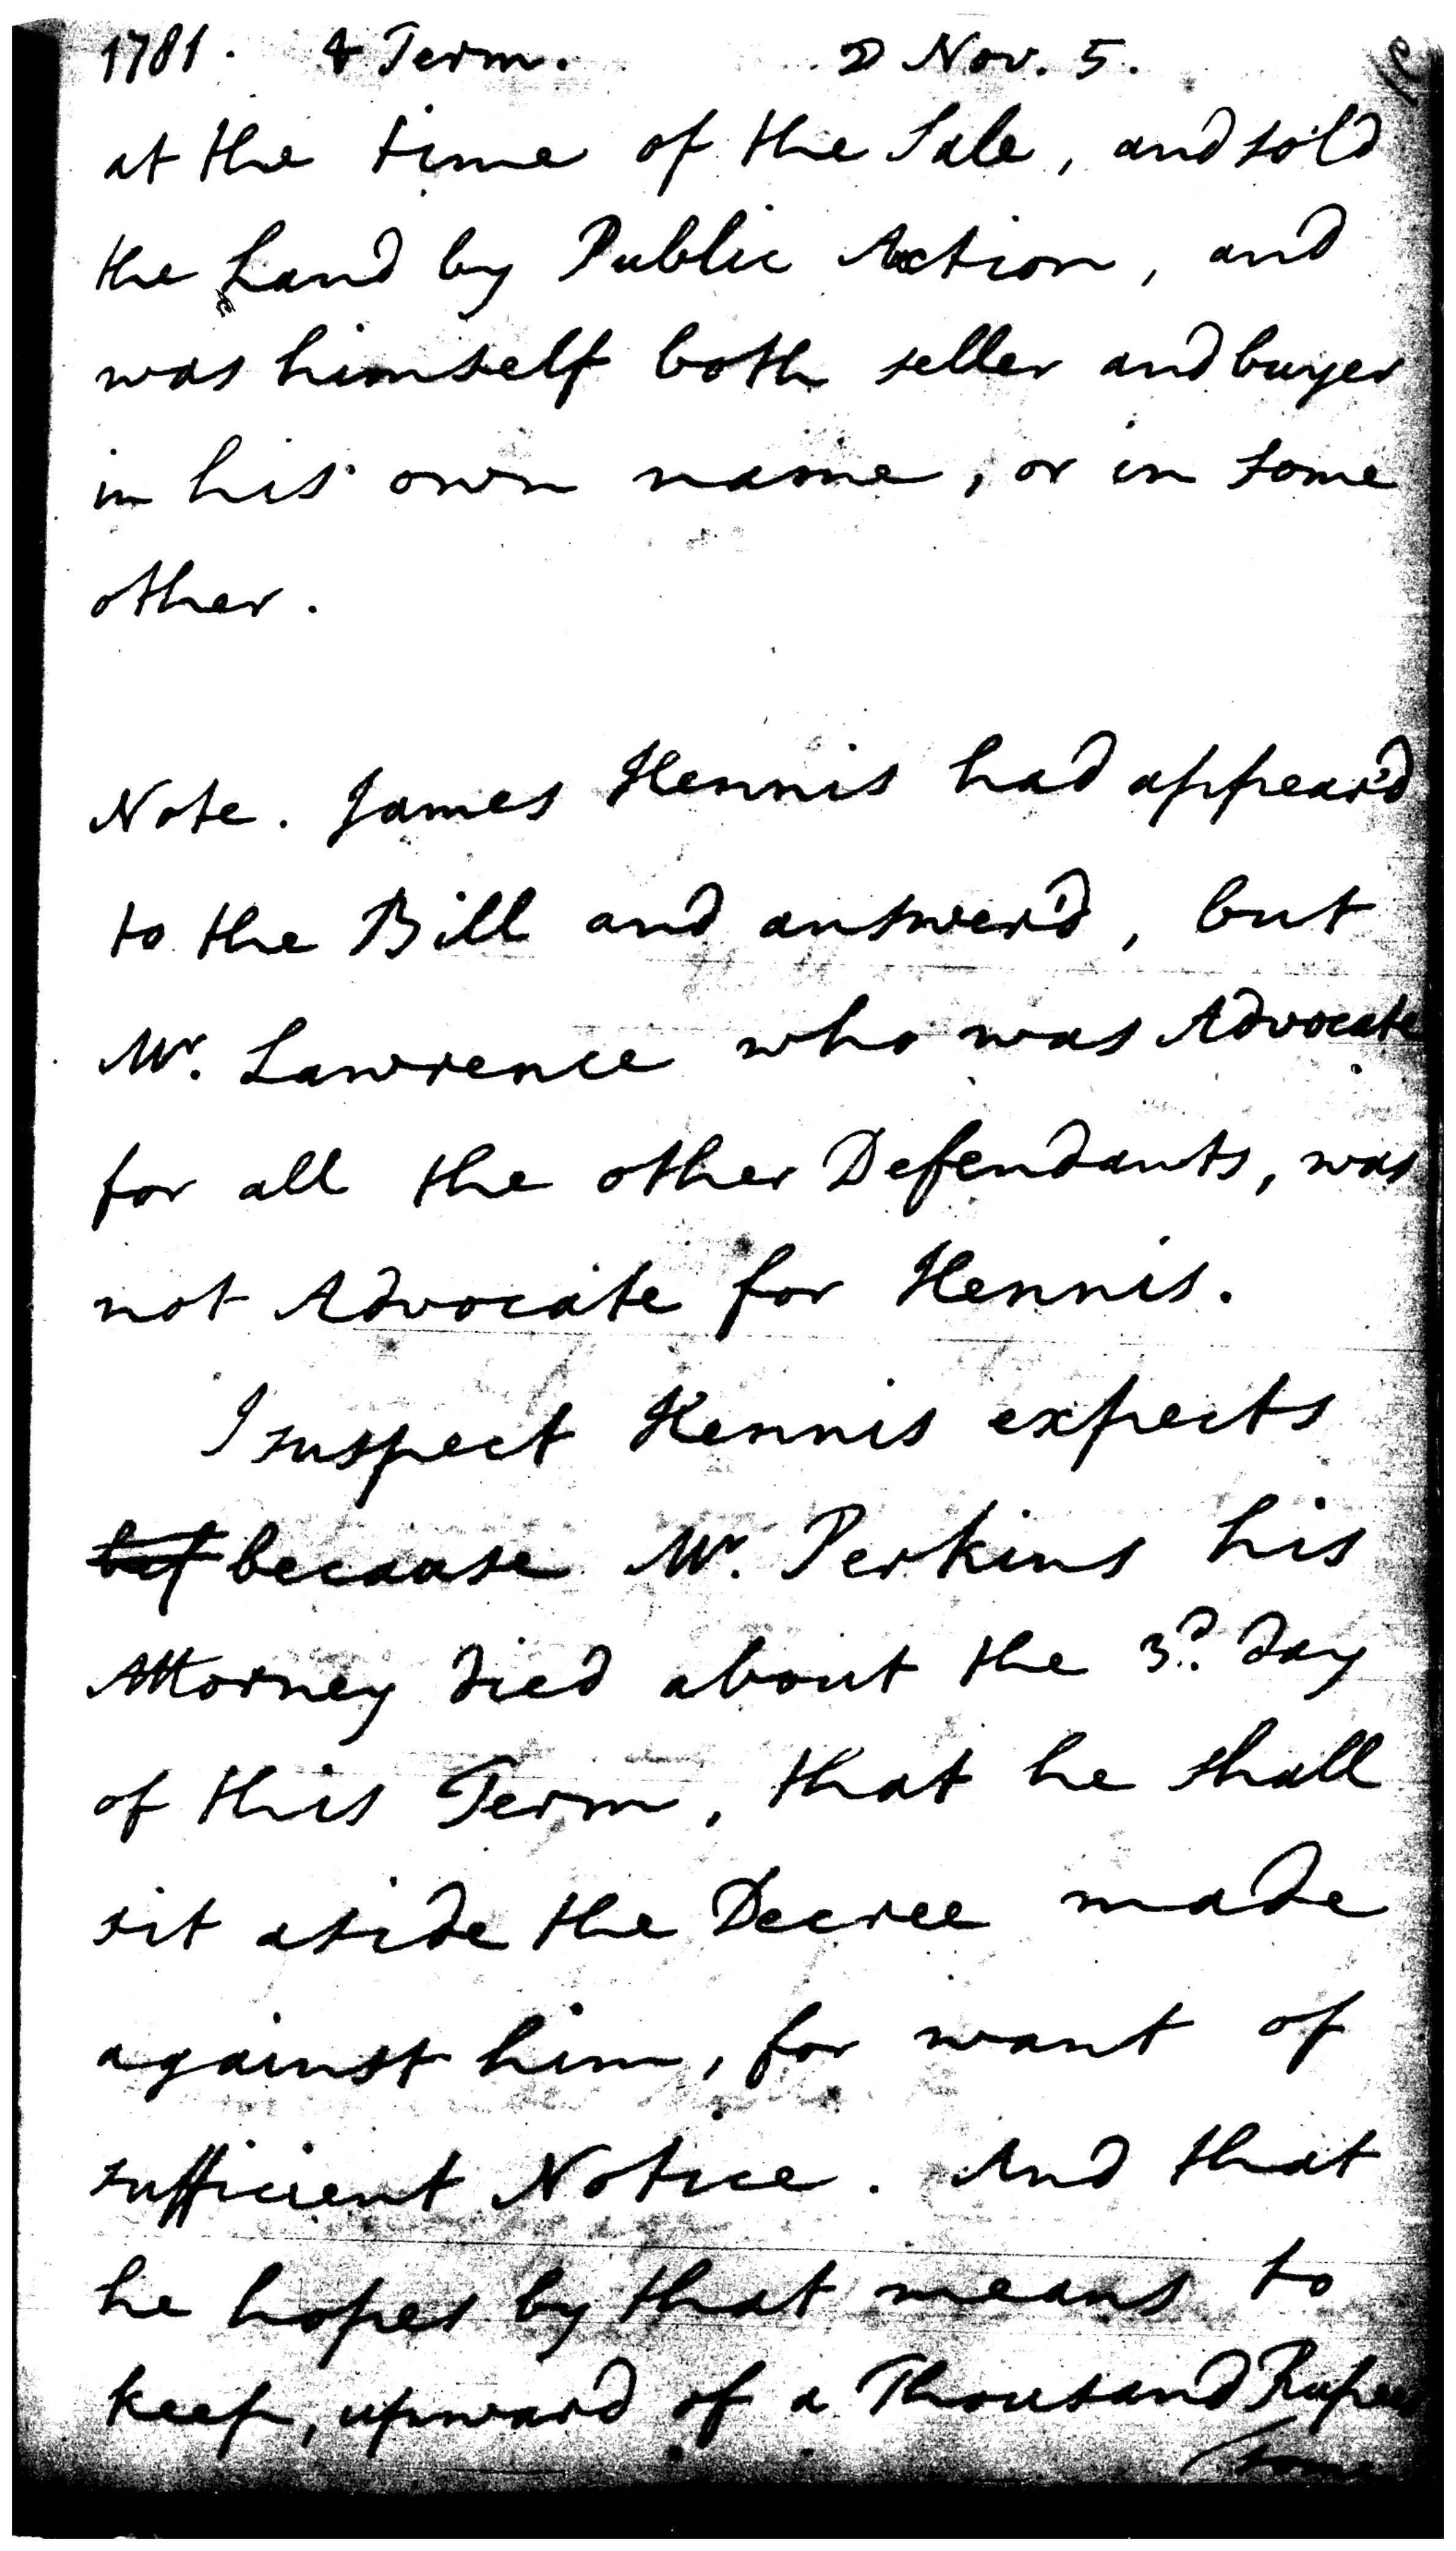 1781. 4 Term. ☽ Nov. 5.
at the time of the Sale, and sold
the Land by Public Auction, and
was himself both seller and buyer
in his own name, or in some
other.
Note. James Hennis had appear'd
to the Bill and answer'd, but
Mr. Lawrence who was Advocate
for all the other Defendants, was
not Advocate for Hennis.
I suspect Hennis expects
because Mr. Perkins his
Attorney died about the 3d. day
of this Term, that he shall
sit aside the Decree made
against him, for want of
sufficient Notice. And that
he hopes by that means to
keep, upward of a Thousand Rupees
some